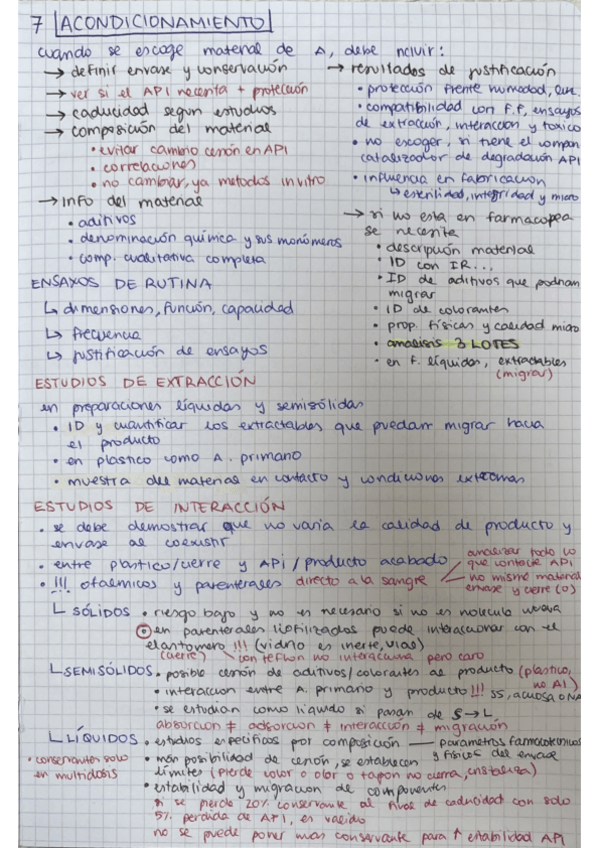 7 ACONDICIONAMIENTO
cuando se escoge material de A, debe incluir:
→ definir envase y conservación
→ ver si el API necesita + protección
→ caducidad segun estudios
→ composición del material
• evitar cambio cesión en API
• correlaciones
• no cambiar, ya metodos in vitro
→ info del material
• aditivos
• denominación química y sus monómeros
• comp. cualitativa completa
→ resultados de justificación
• protección frente humedad, luz..
• compatibilidad con F.F, ensayos
de extracción, interaccion y toxico
• no escoger, si tiene el
catalizador de degradación API
• influencia en fabricación
↳ esterilidad, integridad y micro
→ si no esta en farmacopea
se necesita
• descripción material
• ID con IR...
• ID de aditivos que podrian
migrar
• ID de colorantes
• prop. físicas y calidad micro
• analisis 3 LOTES
• en F. líquidas, extractables
(migrar)
ENSAYOS DE RUTINA
↳ dimensiones, función, capacidad
↳ frecuencia
↳ justificación de ensayos
ESTUDIOS DE EXTRACCIÓN
en preparaciones líquidas y semisólidas
• ID y cuantificar los extractables que puedam migrar hacia
el producto
• en plastico como A. primario
• muestra del material en contacto y condiciones extremas
ESTUDIOS DE INTERACCIÓN
• se debe demostrar que no varia la calidad de producto y
envase al coexistir
• entre plastico/cierre y API / producto acabado
• !!! oftalmicos y parenterales directo a la sangre
analizar todo lo
que contacte API
no mismo material
envase y cierre (o)
SÓLIDOS • riesgo bajo y no es necesario si no es molecula nueva
en parenterales liofilizados puede interaccionar con el
elastomero !!! (vidrio es inerte, vial)
(cierre) con teflon no interacciona pero caro
SEMISÓLIDOS • posible cesión de aditivos/colorantes al producto (plastico,
no Al)
• interaccion entre A. primario y producto !!! SS, acuosa
• se estudian como líquido si pasan de S → L
absorcion ≠ adsorcion ≠ interacción ≠ migración
LÍQUIDOS • estudios especificos por composición — parametros farmacotecnicos
y físicos del envase
• conservantes solo
en multidosis
• más posibilidad de cesión, se establecen
límites (pierde color o olor o tapon no cierra, enstabiliza)
• estabilidad y migracion de componentes
si se pierde 20% conservante al final de caducidad con solo
5% perdida de API, es valido
no se puede poner mas conservante para ↑ estabilidad API